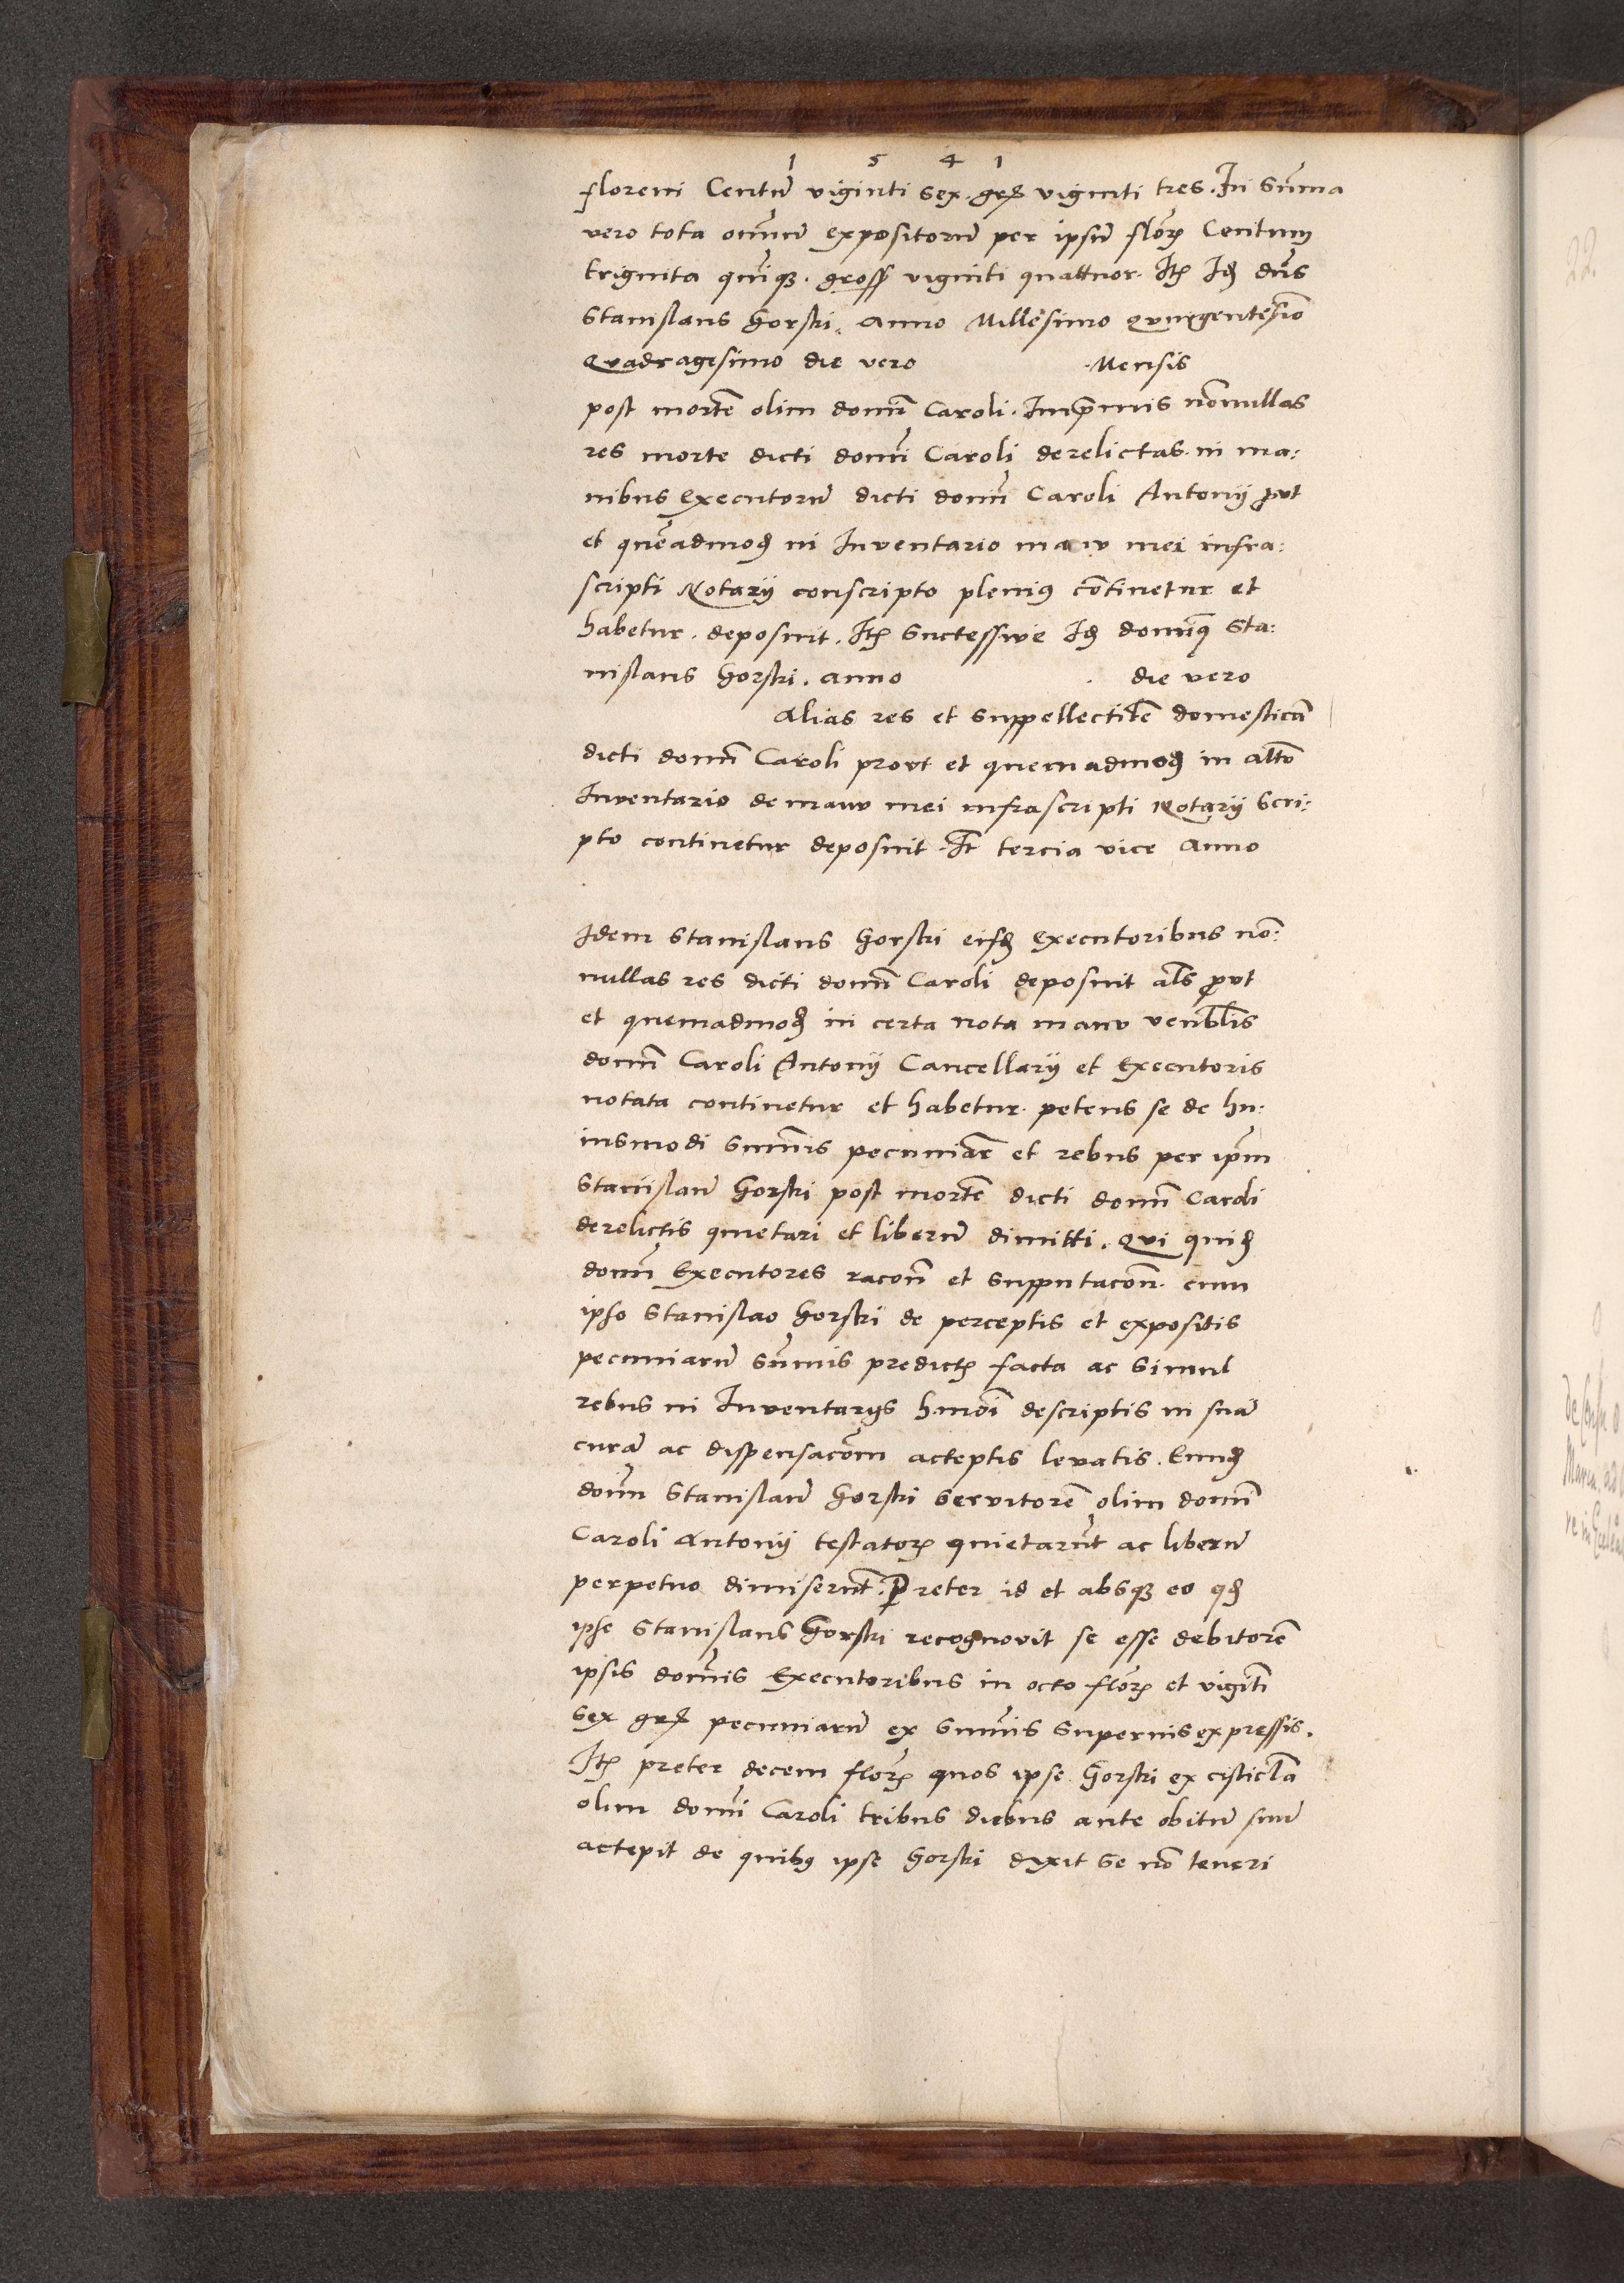 1 5 4 1
floreni Centū viginti sex. grš viginti tres. In sūma
vero tota omniū expositorū per ipsū flōr Centum
triginta quīqꝫ. gross viginti quattuor. Itē Idē dn̄s
Stanislaus Gorski. Anno Millesimo Quingentesīo
Quadragesimo die vero Mensis
post mortē olim domī Caroli. Imp̄mis nōnullas
res morte dicti domī Caroli derelictas. in ma:
nibus Executorū dicti domī Caroli Antonij ꝓut
et quēadmodū in Inventario manu mei infra:
scripti Notarij conscripto plenius cōtinetur et
habetur. deposuit. Itē Suctessive Idē dominus Sta:
nislaus Gorski. anno die vero
Alias res et suppellectilē domesticā
dicti domī Caroli prout et quemadmodū in altō
Inventario de manu mei infrascripti Notarij Scri:
pto continetur deposuit. It̄ tercia vice Anno
Idem Stanislaus Gorski eisdē Executoribus nō:
nullas res dicti domī Caroli deposuit als̄ ꝓut
et quemadmodū in certa nota manu ven̄blis
domī Caroli Antonij Cancellarij et Executoris
notata continetur et habetur. petens se de hu:
iusmodi sum̄is pecuniar̄ et rebus per ip̄m
Stanislaū Gorski post mortē dicti domī Caroli
derelictis quietari et liberū dimitti. Qui quidē
domī Executores racōn̄ et supputacōn̄. cum
ipso Stanislao Gorski de perceptis et expositis
pecuniarū sūmis predictē facta ac simul
rebus in Inventarijs hmōi descriptis in suā
curā ac dispensacōm acteptis levatis. Eundē
dom̄ Stanislaū Gorski servitorē olim domī
Caroli Antonij testatorꝫ quietarūt ac liberū
perpetuo dimiserūt. Preter id et absqꝫ eo qđ
ipse Stanislaus Gorski recognovit se esse debitorē
ipsis domīs Executoribus in octo flōr et vigīti
sex grš pecuniarū ex sum̄is supernis expressis.
Itē preter decem flōr quos ipse Gorski ex cisticl̄a
olim domī Caroli tribus diebus ante obitū suū
actepit de quibus ipse Gorski dixit se nō teneri